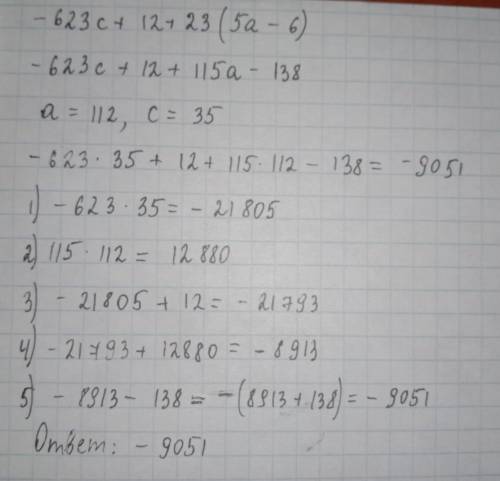 - 623c + 12 + 23 (5a - 6)
- 623c + 12 + 115a - 138
a = 112, c = 35
- 623 · 35 + 12 + 115 · 112 - 138 = - 9051
1) - 623 · 35 = - 21805
2) 115 · 112 = 12880
3) - 21805 + 12 = - 21793
4) - 21793 + 12880 = - 8913
5) - 8913 - 138 = - (8913 + 138) = - 9051
Ответ: - 9051